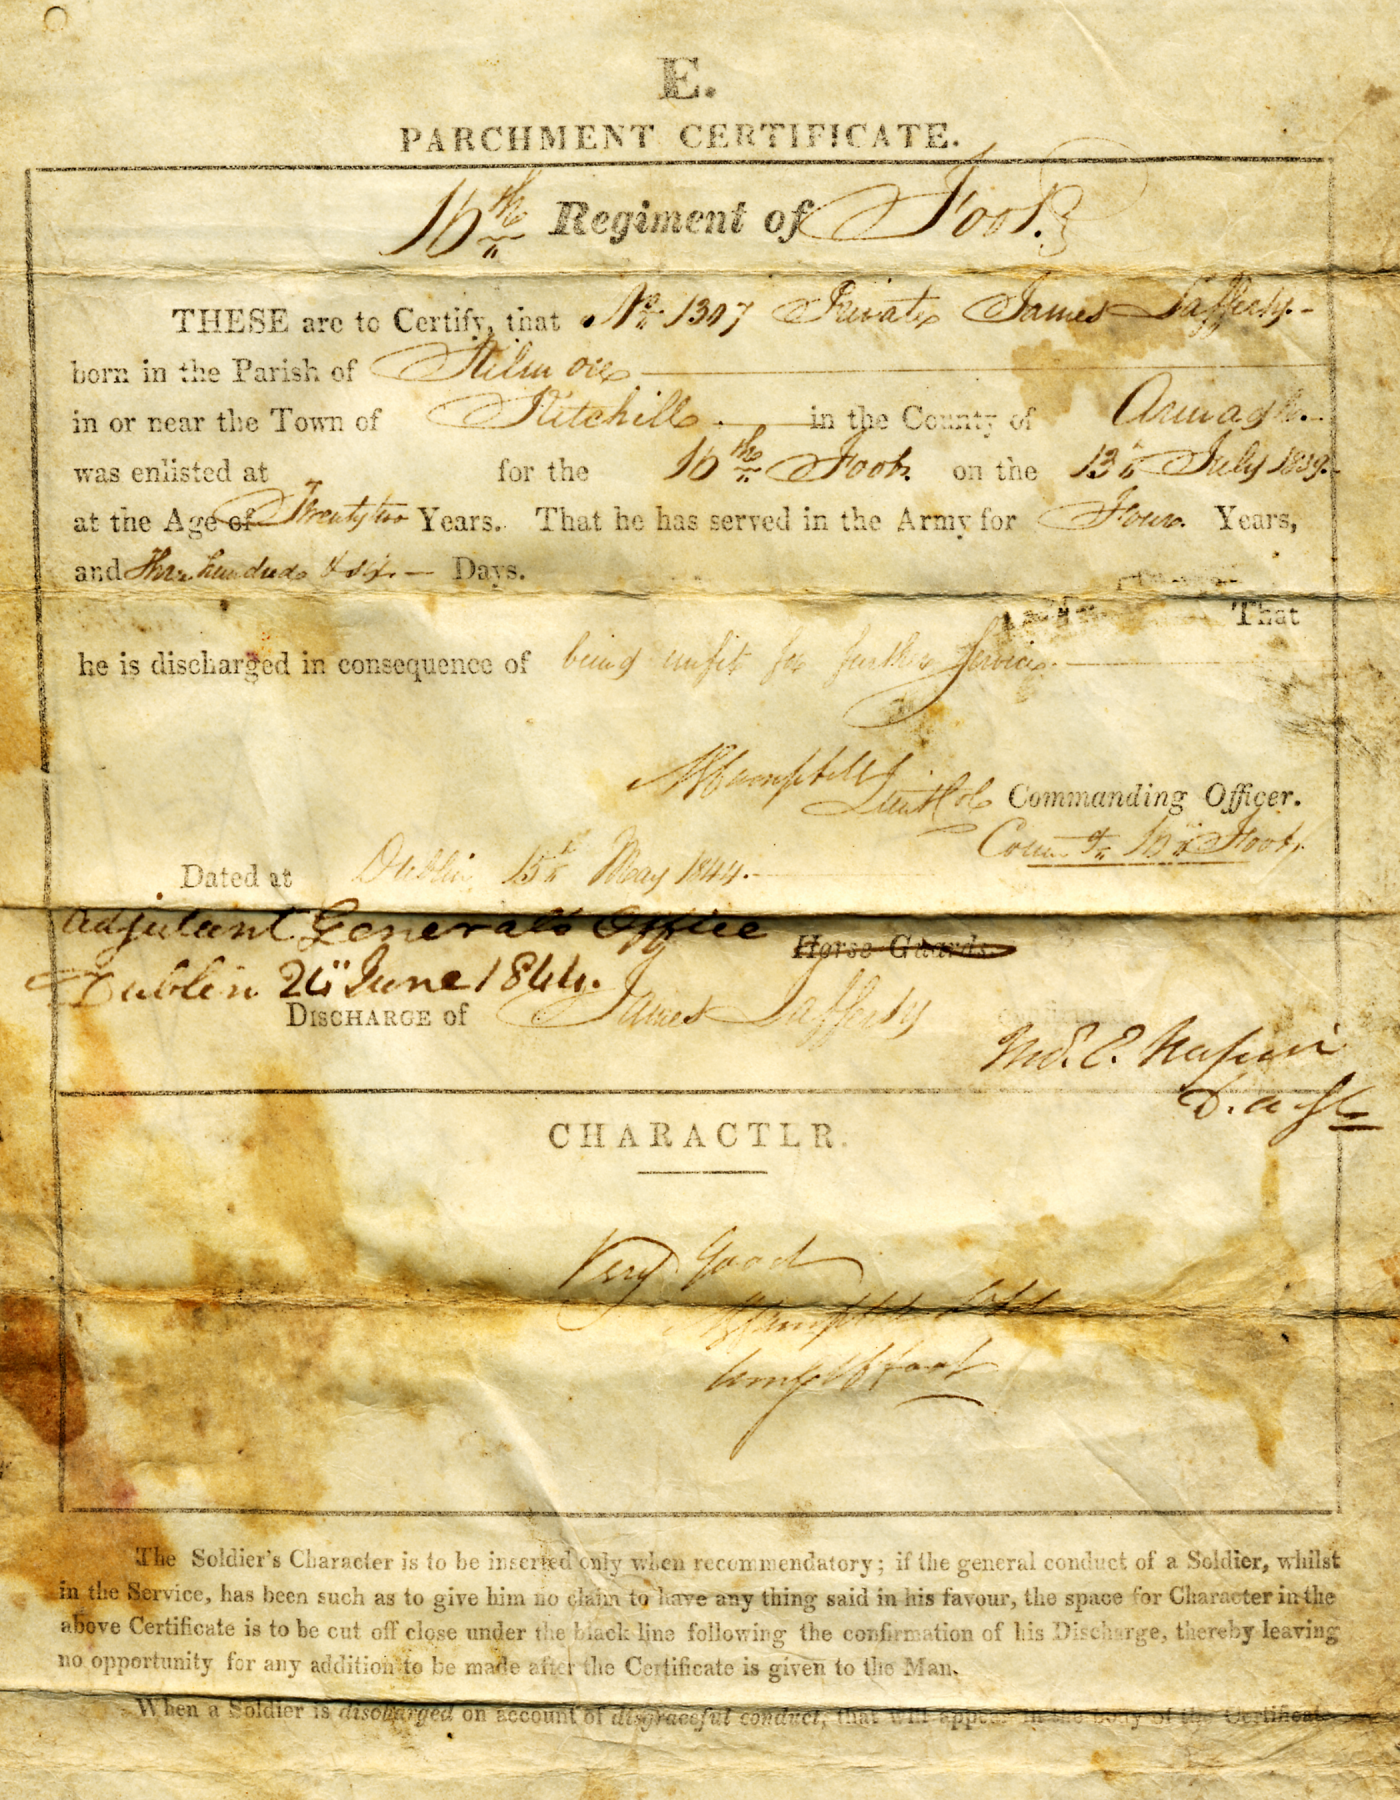 E.
PARCHMENT CERTIFICATE.
16th Regiment of Foot.
THESE are to Certify, that No 1307 Private James Lafferty.
born in the Parish of Kilmore
in or near the Town of Ritchill in the County of Armagh.
was enlisted at for the 16th Foot on the 13th July 1839.
at the Age of Twenty two Years. That he has served in the Army for Four Years,
and Three hundred & six Days.
That
he is discharged in consequence of being unfit for further Service.
Campbell
Lieut Col Commanding Officer.
Comg 16th Foot.
Dated at Dublin 15th May 1844.
Adjutant General's Office Horse Guards.
Dublin 24" June 1844.
DISCHARGE of James Lafferty
E. Napier
D. A. G.
CHARACTER.
Very Good
Campbell
Comg 16 Foot
The Soldier's Character is to be inserted only when recommendatory; if the general conduct of a Soldier, whilst
in the Service, has been such as to give him no claim to have any thing said in his favour, the space for Character in the
above Certificate is to be cut off close under the black line following the confirmation of his Discharge, thereby leaving
no opportunity for any addition to be made after the Certificate is given to the Man.
When a Soldier is discharged on account of disgraceful conduct, that will appear in the body of the Certificate